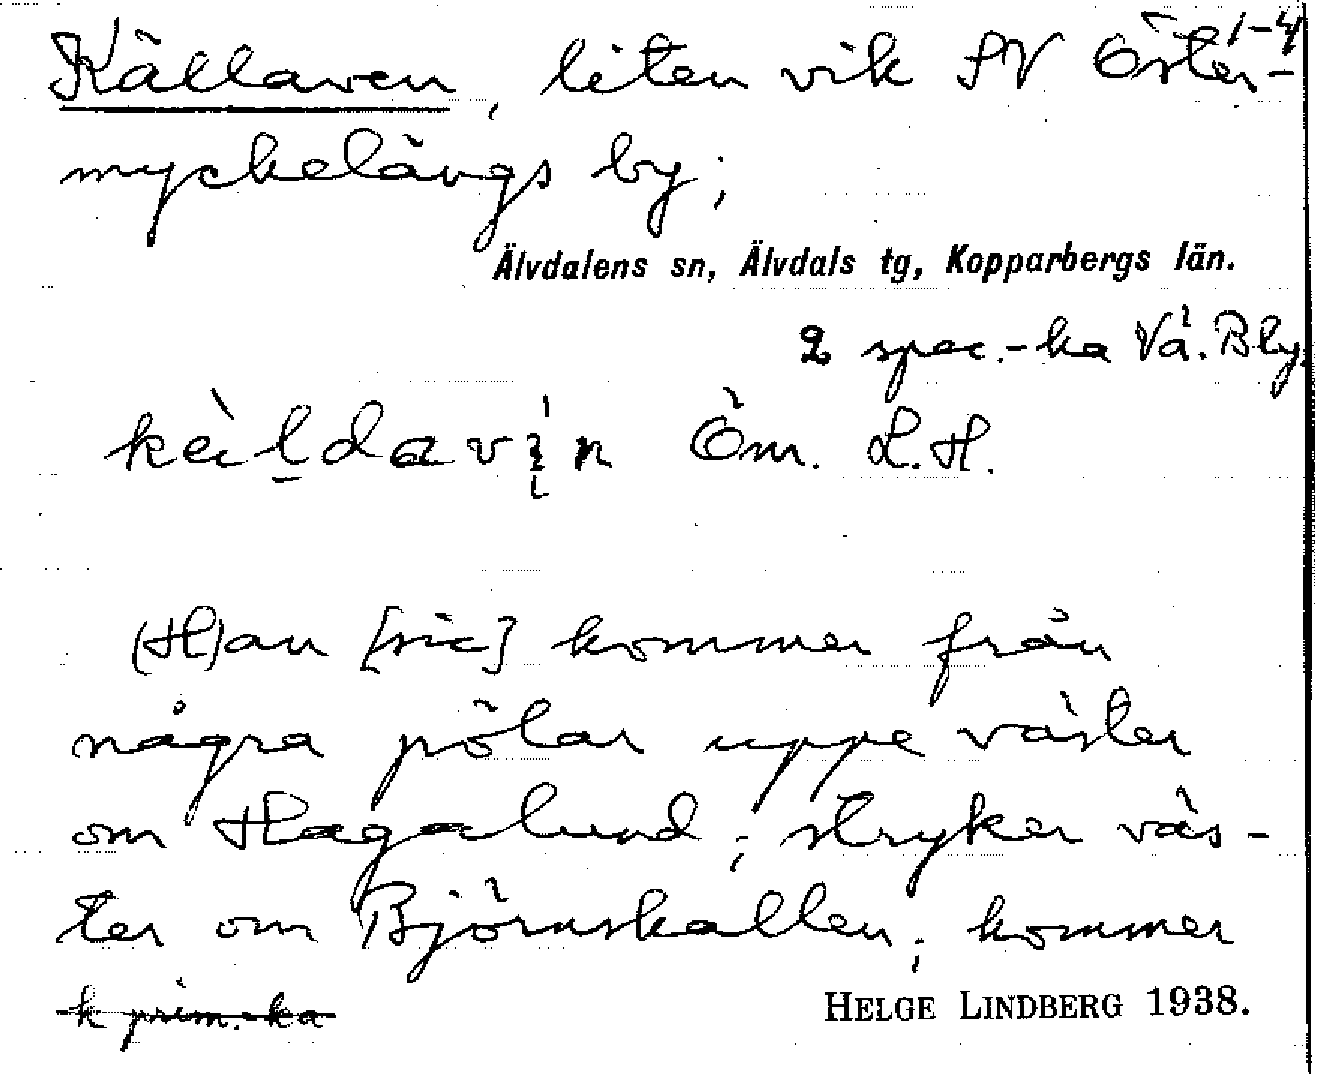 1-4
Källaven, liten vik SV Öster-
myckelängs by;
Älvdalens sn, Älvdals tg, Kopparbergs län.
2 spec.-ka Vä. Bly.
kèḷdavịn Öm. L.H.
(H)an [sic] kommer från
några pölar uppe väster
om Hagalund; stryker väs-
ter om Björnskallen; kommer
k prim.-ka
HELGE LINDBERG 1938.